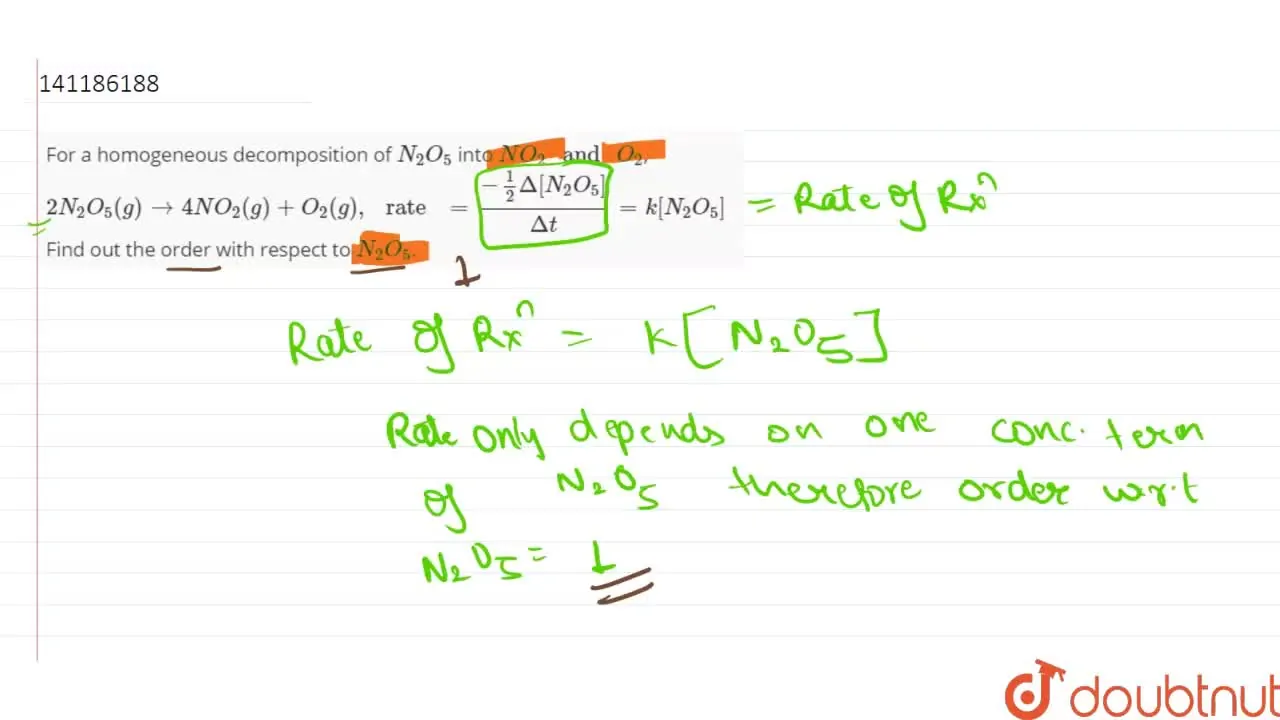 141186188
For a homogeneous decomposition of N₂O₅ into NO₂ and O₂,
2N₂O₅(g) → 4NO₂(g) + O₂(g), rate = −½Δ[N₂O₅]/Δt = k[N₂O₅] = Rate of Rxⁿ
Find out the order with respect to N₂O₅.
1
Rate of Rxⁿ = K[N₂O₅]
Rate only depends on one conc. term
of N₂O₅ therefore order w.r.t
N₂O₅ = 1
doubtnut